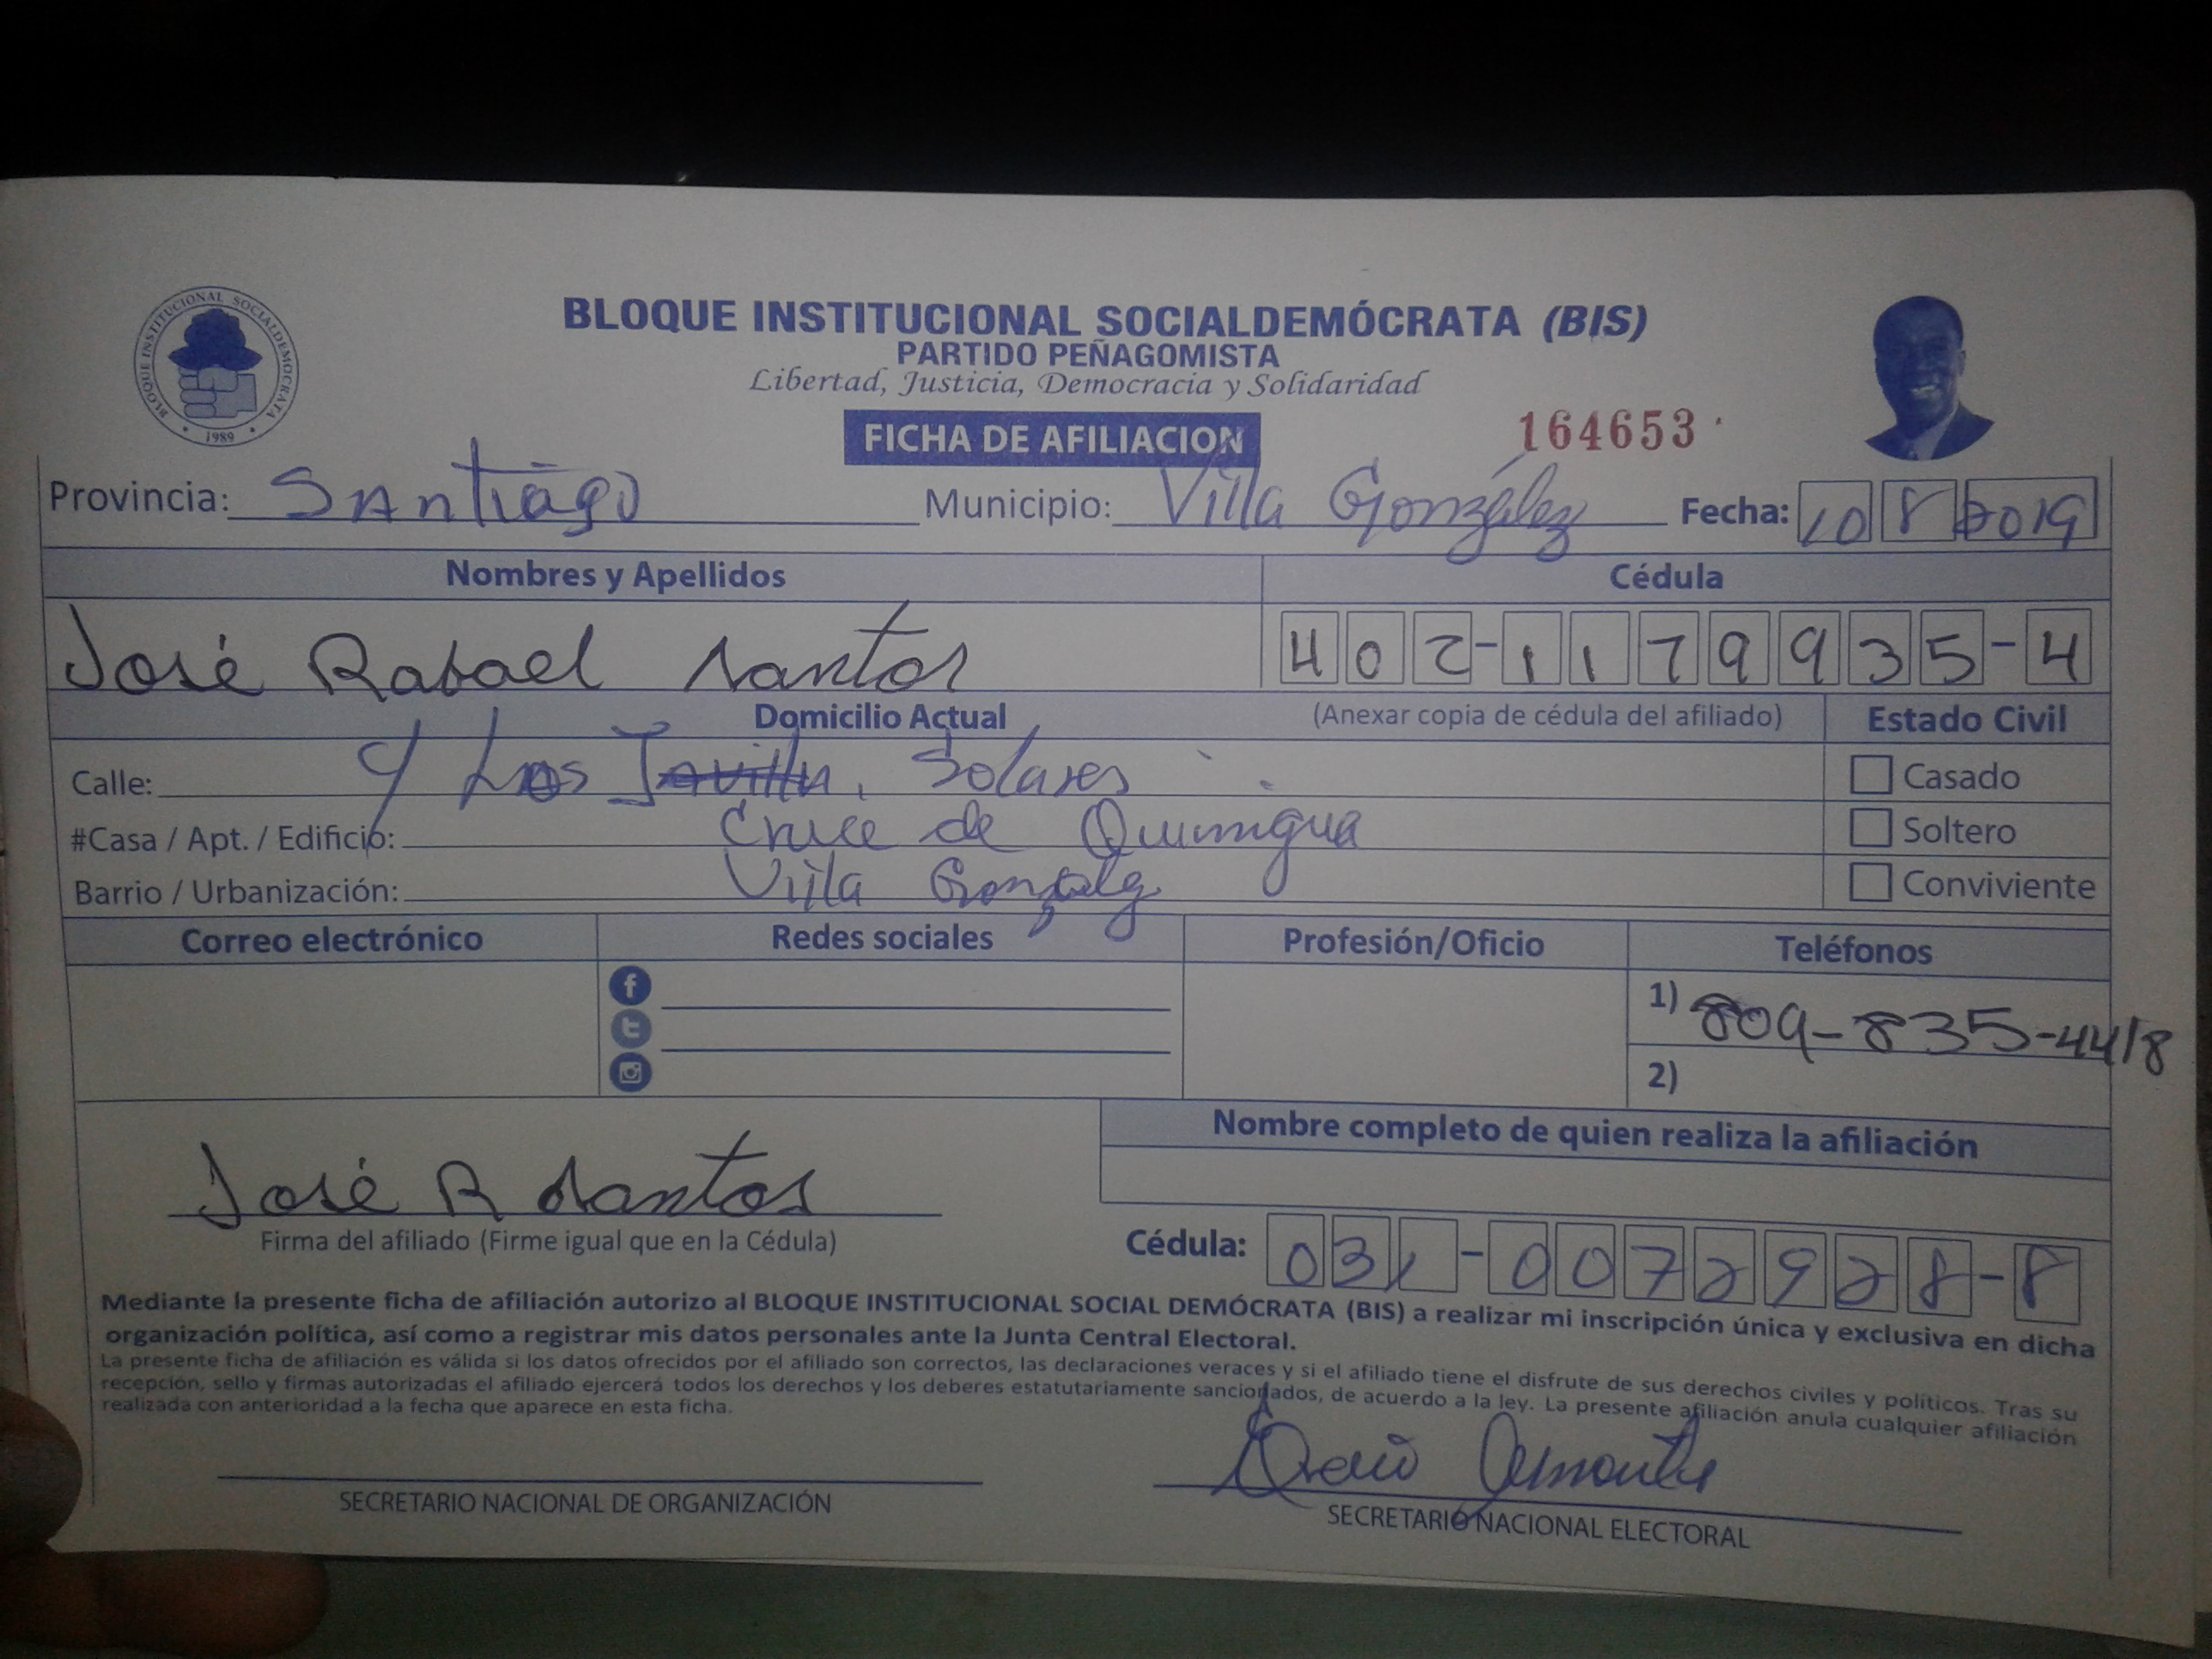 BLOQUE INSTITUCIONAL SOCIALDEMOCRATA
1989
BLOQUE INSTITUCIONAL SOCIALDEMÓCRATA (BIS)
PARTIDO PEÑAGOMISTA
Libertad, Justicia, Democracia y Solidaridad
FICHA DE AFILIACION
164653
Provincia: Santiago Municipio: Villa González Fecha: 10 8 2019
Nombres y Apellidos Cédula
José Rafael Santos 402-1179935-4
Domicilio Actual (Anexar copia de cédula del afiliado) Estado Civil
Calle: C/ Los Solares Casado
#Casa / Apt. / Edificio: Cruce de Quinigua Soltero
Barrio / Urbanización: Villa Gonzalez Conviviente
Correo electrónico Redes sociales Profesión/Oficio Teléfonos
1) 809-835-4418
2)
Nombre completo de quien realiza la afiliación
José R Santos
Firma del afiliado (Firme igual que en la Cédula)
Cédula: 031-0072928-8
Mediante la presente ficha de afiliación autorizo al BLOQUE INSTITUCIONAL SOCIAL DEMÓCRATA (BIS) a realizar mi inscripción única y exclusiva en dicha
organización política, así como a registrar mis datos personales ante la Junta Central Electoral.
La presente ficha de afiliación es válida si los datos ofrecidos por el afiliado son correctos, las declaraciones veraces y si el afiliado tiene el disfrute de sus derechos civiles y políticos. Tras su
recepción, sello y firmas autorizadas el afiliado ejercerá todos los derechos y los deberes estatutariamente sancionados, de acuerdo a la ley. La presente afiliación anula cualquier afiliación
realizada con anterioridad a la fecha que aparece en esta ficha.
SECRETARIO NACIONAL DE ORGANIZACIÓN
SECRETARIO NACIONAL ELECTORAL